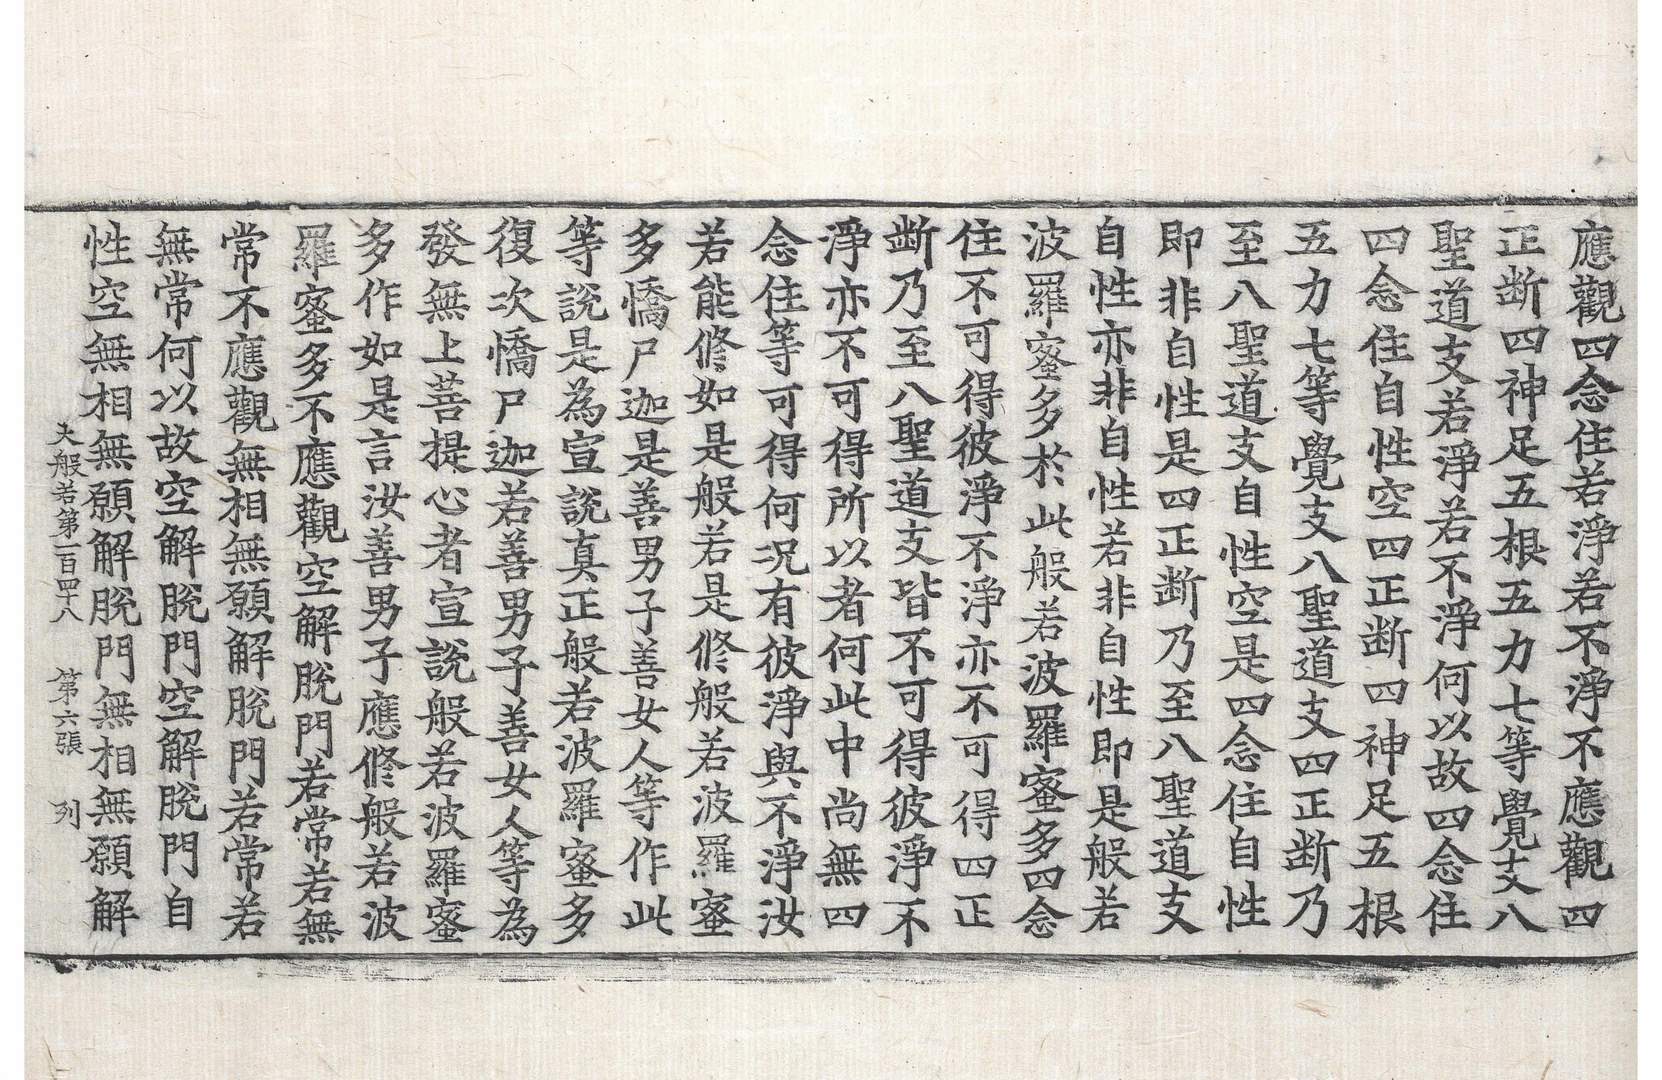 應觀四念住若淨若不淨不應觀四
正断四神足五根五力七等覺支八
聖道支若淨若不淨何以故四念住
四念住自性空四正断四神足五根
五力七等覺支八聖道支四正断乃
至八聖道支自性空是四念住自性
即非自性是四正断乃至八聖道支
自性亦非自性若非自性即是般若
波羅蜜多於此般若波羅蜜多四念
住不可得彼淨不淨亦不可得四正
断乃至八聖道支皆不可得彼淨不
淨亦不可得所以者何此中尚無四
念住等可得何況有彼淨與不淨汝
若能修如是般若是修般若波羅蜜
多憍尸迦是善男子善女人等作此
等說是為宣說真正般若波羅蜜多
復次憍尸迦若善男子善女人等為
發無上菩提心者宣說般若波羅蜜
多作如是言汝善男子應修般若波
羅蜜多不應觀空解脫門若常若無
常不應觀無相無願解脫門若常若
無常何以故空解脫門空解脫門自
性空無相無願解脫門無相無願解
大般若第一百四十八 第六張 列